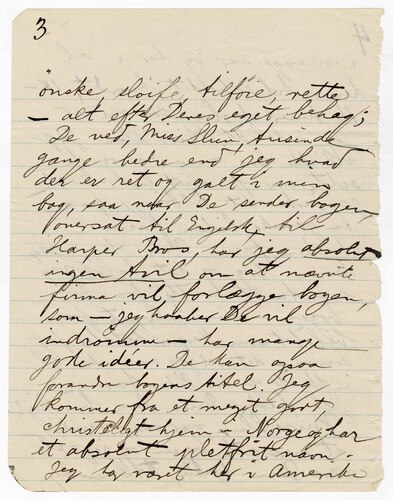 3
ønske sløife, tilføie, rette
— alt efter Deres eget behag;
De ved, Miss Slun, tusinde
gange bedre end jeg hvad
der er ret og galt i min
bog, saa naar De sender bogen
oversat til Engelsk, til
Harper Bros, har jeg absolut
ingen tvil om at nævnte
firma vil forlægge bogen,
som — jeg haaber De vil
indrömme — har mange
gode idéer. De kan ogsaa
forandre bogens titel. Jeg
kommer fra et meget godt,
christeligt hjem i Norge og har
et absolut pletfrit navn.
Jeg har været her i Amerika